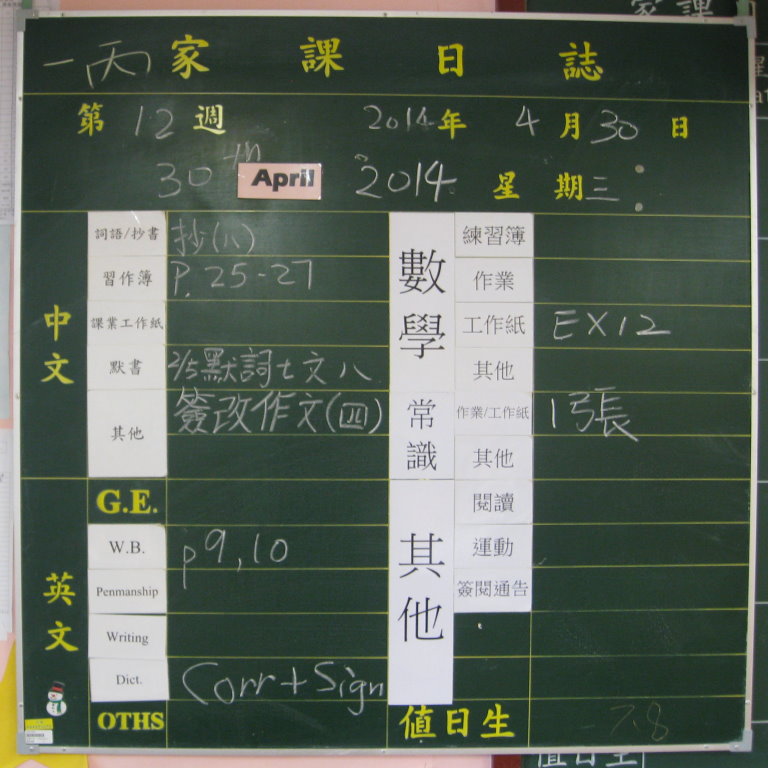 一丙 家課日誌
第 12 週 2014 年 4 月 30 日
30th April 2014 星期三
中文
詞語/抄書 抄(八)
習作簿 P. 25-27
課業工作紙
默書 2/5默詞七文八
其他 簽改作文(四)
英文
G.E.
W.B. p9,10
Penmanship
Writing
Dict. Corr + Sign
OTHS
數學
練習簿
作業
工作紙 EX12
其他
常識
作業/工作紙 1張
其他
其他
閱讀
運動
簽閱通告
值日生 7.8
家課
值日生